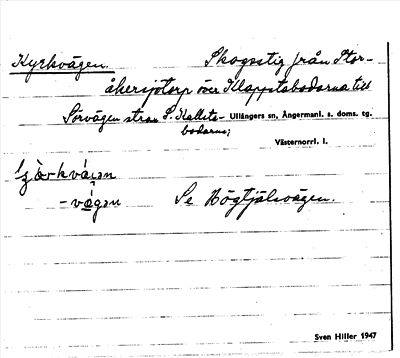 Kyrkvägen. Skogsstig från Stor-
åkersjötorp över Klappstabodarna till
Sörvägen strax S. Kallsta- Ullångers sn, Ångermanl. s. doms. tg.
bodarna;
Västernorrl. l.
-vägen Se Högtjälsvägen.
Sven Hiller 1947